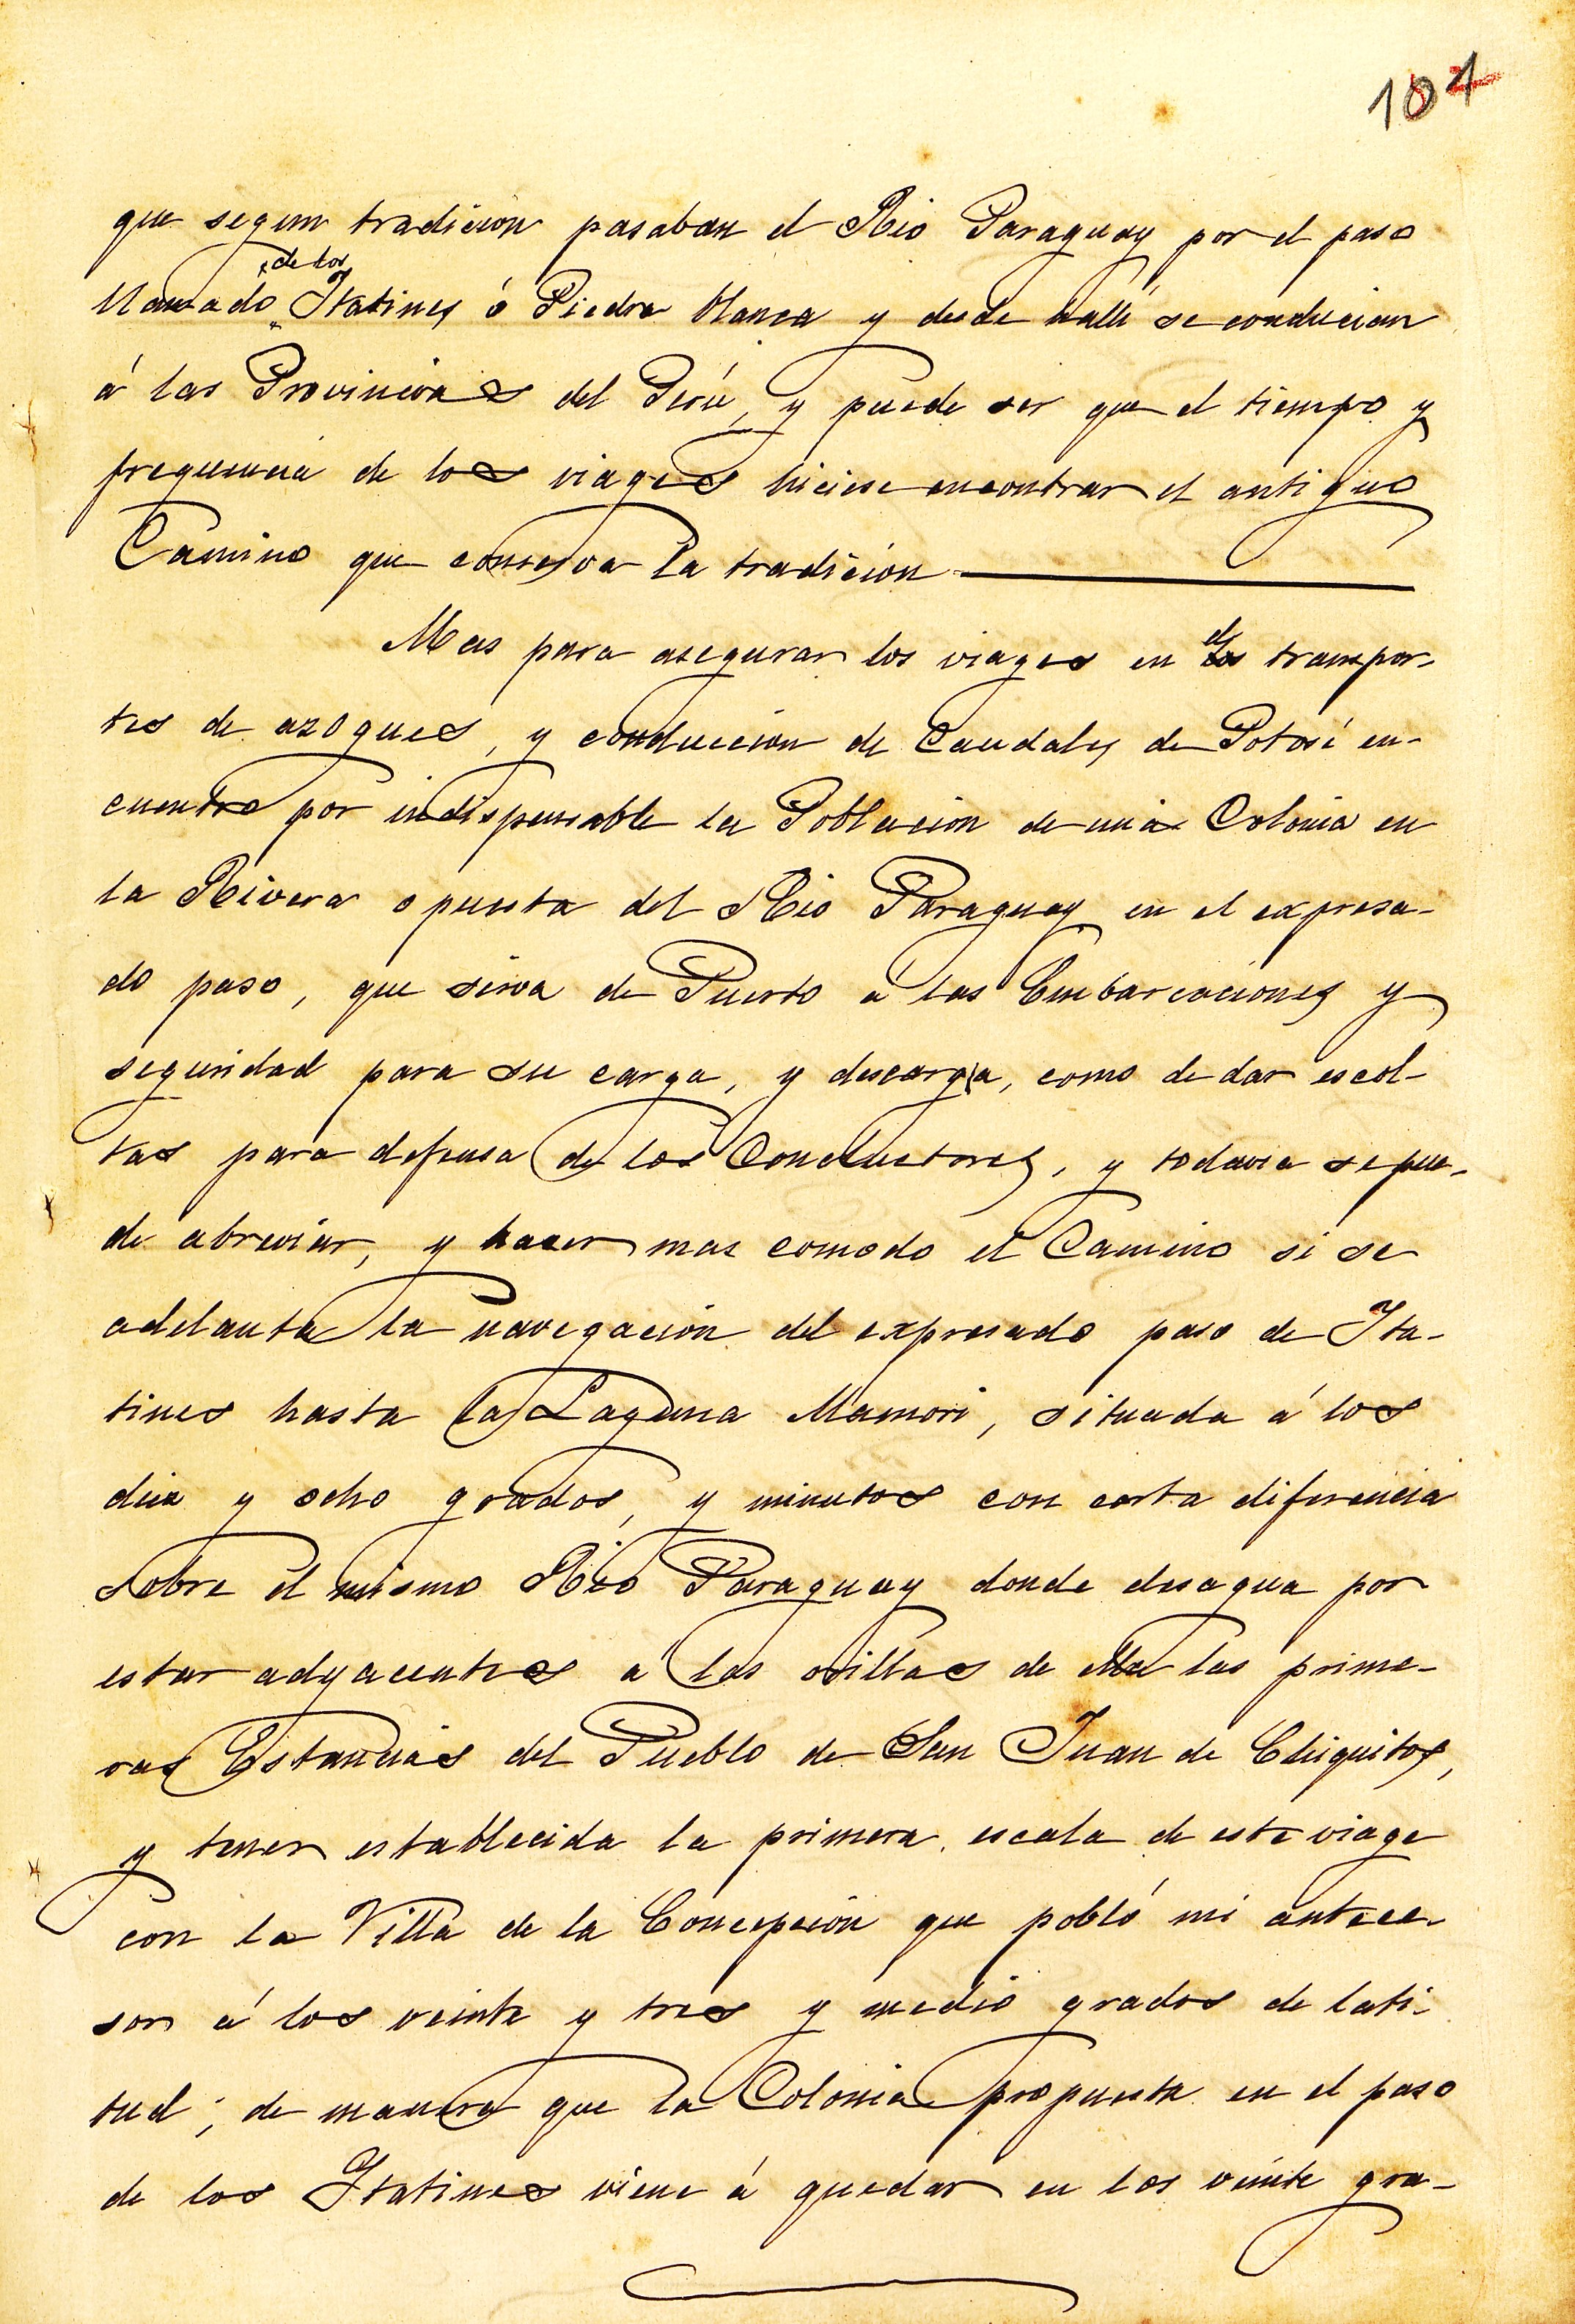 104
que segun tradicion pasaban el Rio Paraguay por el paso
de los
llamado Itatines ó Piedra blanca y desde hallí se conducian
á las Provincias del Perú, y puede ser que el tiempo y
frequencia de los viages hiciese encontrar el antiguo
Camino que conserva la tradición
Mas para asegurar los viages en el transpor-
tes de azogues, y conduccion de Caudales de Potosí en-
cuentro por indispensable la Poblacion de una Colonia en
la Rivera opuesta del Rio Paraguay en el expresa-
do paso, que sirva de Puerto á las Embarcaciones y
seguridad para su carga, y descarga, como de dar escol-
tas para defensa de los Conductores, y todavia se pue-
de abreviar, y hacer mas comodo el Camino si se
adelanta la navegación del expresado paso de Ita-
tines hasta la Laguna Mamori, situada á los
diez y ocho grados, y minutos con corta diferencia
sobre el mismo Rio Paraguay donde desagua por
estar adyacentes a las orillas de ella las prime-
ras Estancias del Pueblo de San Juan de Chiquitos,
y tener establecida la primera escala de este viage
con la Villa de la Concepción que pobló mi antece-
sor á los veinte y tres y medio grados de lati-
tud; de manera que la Colonia propuesta en el paso
de los Itatines viene á quedar en los veinte gra-